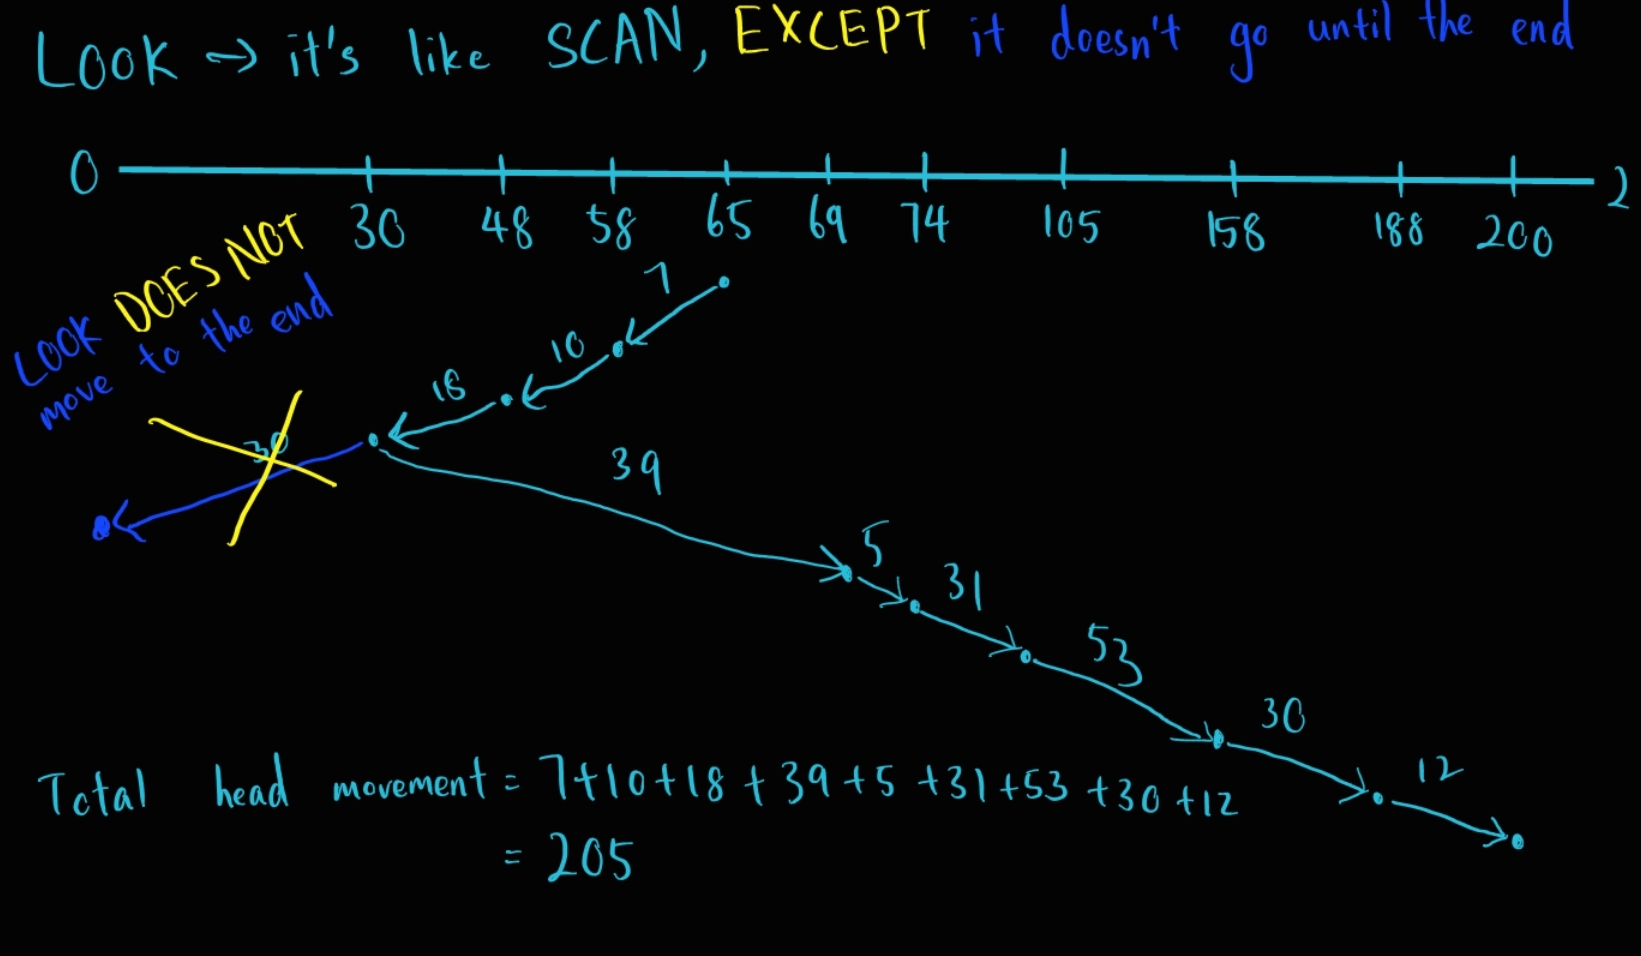 LOOK → it's like SCAN, EXCEPT it doesn't go until the end
0 2
30 48 58 65 69 74 105 158 188 200
LOOK DOES NOT
move to the end
7
10
18
30
39
5
31
53
30
12
Total head movement = 7+10+18+39+5+31+53+30+12
= 205